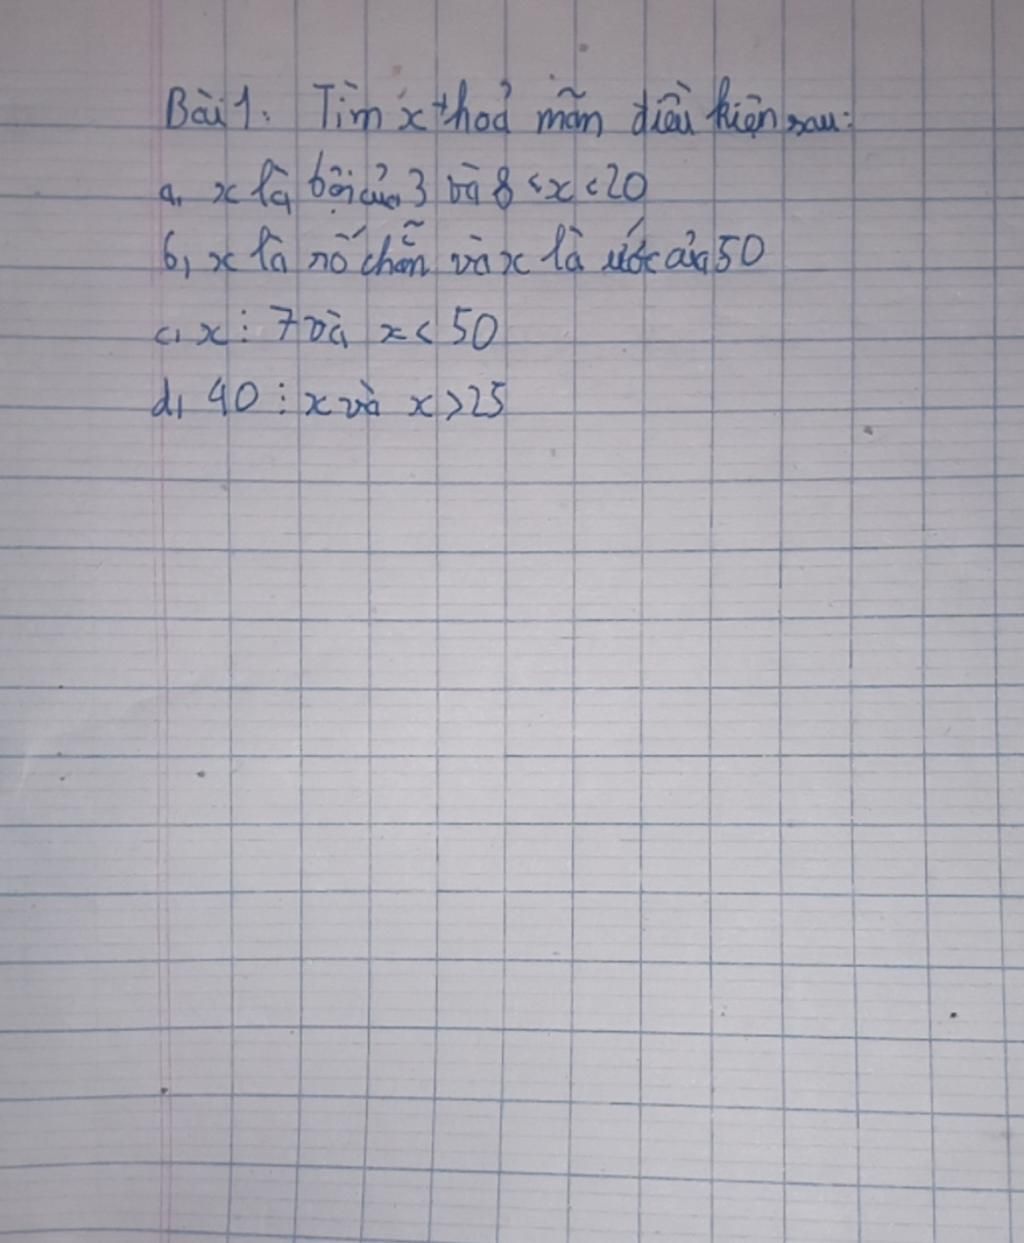 Bài 1. Tìm x thoả mãn điều kiện sau:
a, x là bội của 3 và 8 < x < 20
b, x là số chẵn và x là ước của 50
c, x ⋮ 7 và x < 50
d, 40 ⋮ x và x > 25